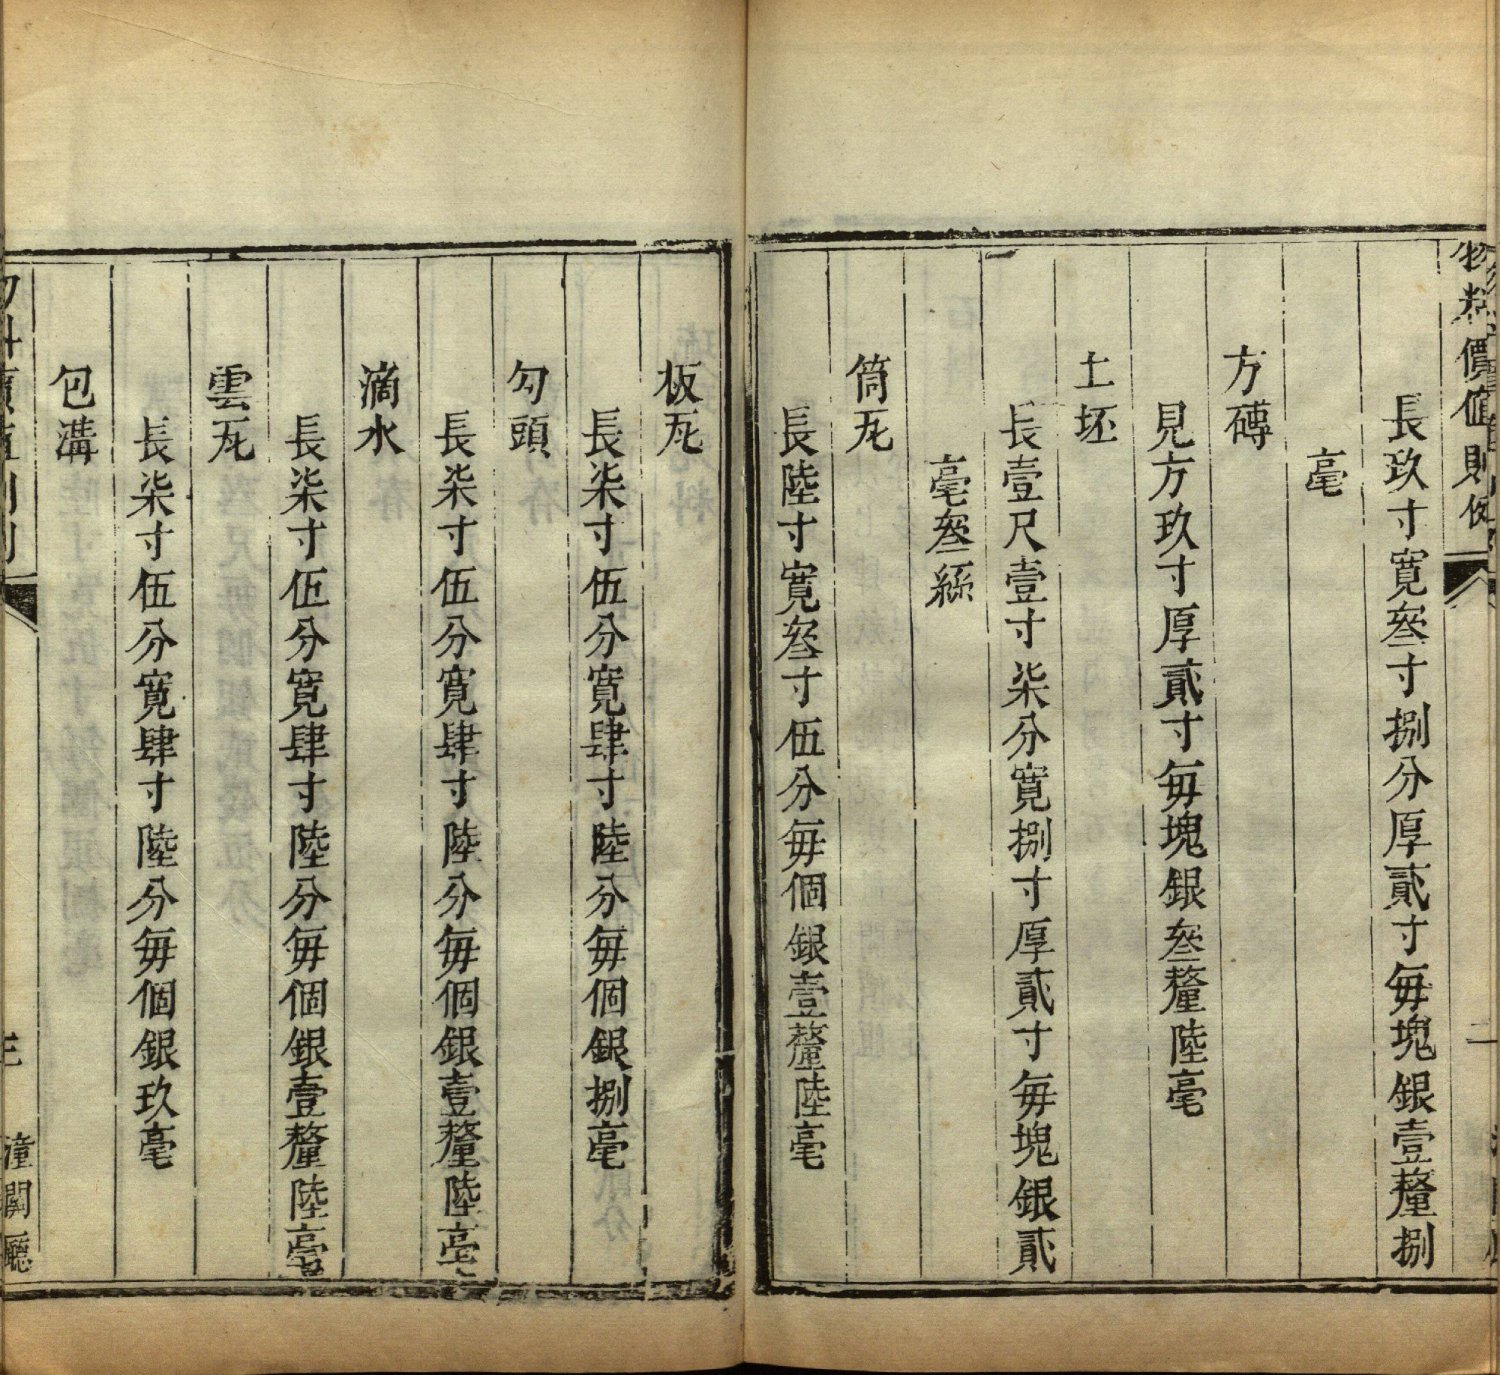 物料價值則例
二
長玖寸寬叄寸捌分厚貳寸每塊銀壹釐捌
毫
方磚
見方玖寸厚貳寸每塊銀叄釐陸毫
土坯
長壹尺壹寸柒分寬捌寸厚貳寸每塊銀貳
毫叄絲
筒瓦
長陸寸寬叄寸伍分每個銀壹釐陸毫
板瓦
長柒寸伍分寬肆寸陸分每個銀捌毫
勾頭
長柒寸伍分寬肆寸陸分每個銀壹釐陸毫
滴水
長柒寸伍分寬肆寸陸分每個銀壹釐陸毫
雲瓦
長柒寸伍分寬肆寸陸分每個銀玖毫
包溝
物料價值則例
三
潼關廳